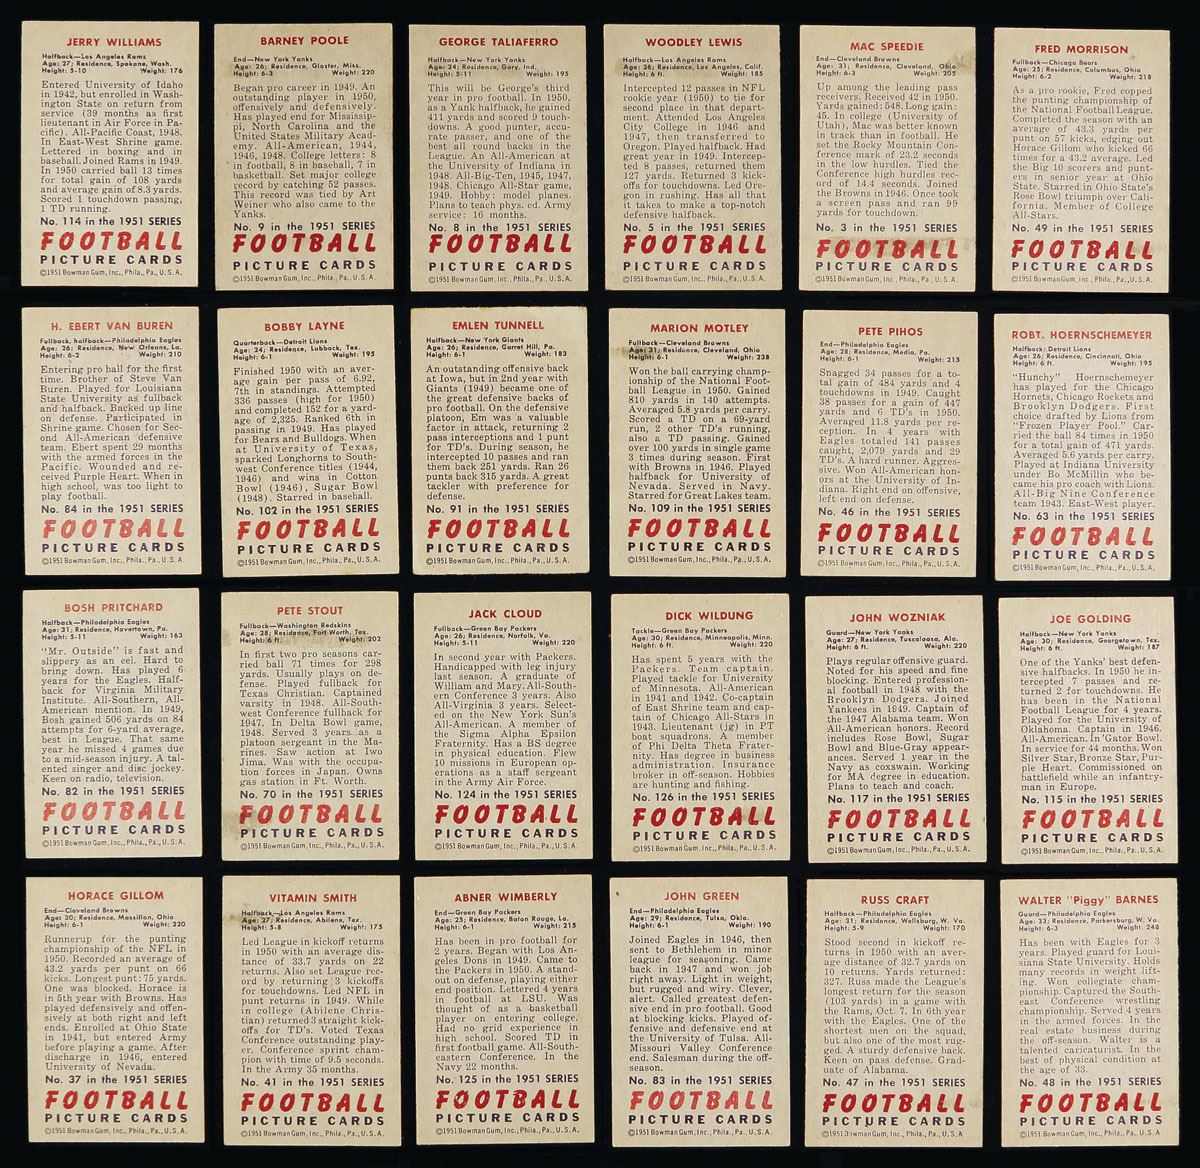 JERRY WILLIAMS
Halfback—Los Angeles Rams
Age: 27; Residence, Spokane, Wash.
Height: 5-10 Weight: 176
Entered University of Idaho
in 1942, but enrolled in Wash-
ington State on return from
service (39 months as first
lieutenant in Air Force in Pa-
cific). All-Pacific Coast, 1948.
In East-West Shrine game.
Lettered in boxing and in
baseball. Joined Rams in 1949.
In 1950 carried ball 13 times
for total gain of 108 yards
and average gain of 8.3 yards.
Scored 1 touchdown passing,
1 TD running.
No. 114 in the 1951 SERIES
FOOTBALL
PICTURE CARDS
©1951 Bowman Gum, Inc., Phila., Pa., U.S.A.
BARNEY POOLE
End—New York Yanks
Age: 26; Residence, Gloster, Miss.
Height: 6-3 Weight: 220
Began pro career in 1949. An
outstanding player in 1950,
offensively and defensively.
Has played end for Mississip-
pi, North Carolina and the
United States Military Acad-
emy. All-American, 1944,
1946, 1948. College letters: 8
in football, 8 in baseball, 7 in
basketball. Set major college
record by catching 52 passes.
This record was tied by Art
Weiner who also came to the
Yanks.
No. 9 in the 1951 SERIES
FOOTBALL
PICTURE CARDS
©1951 Bowman Gum, Inc., Phila., Pa., U.S.A.
GEORGE TALIAFERRO
Halfback—New York Yanks
Age: 24; Residence, Gary, Ind.
Height: 5-11 Weight: 195
This will be George's third
year in pro football. In 1950,
as a Yank halfback, he gained
411 yards and scored 9 touch-
downs. A good punter, accu-
rate passer, and one of the
best all round backs in the
League. An All-American at
the University of Indiana in
1948. All-Big-Ten, 1945, 1947,
1948. Chicago All-Star game,
1949. Hobby: model planes.
Plans to teach phys. ed. Army
service: 16 months.
No. 8 in the 1951 SERIES
FOOTBALL
PICTURE CARDS
©1951 Bowman Gum, Inc., Phila., Pa., U.S.A.
WOODLEY LEWIS
Halfback—Los Angeles Rams
Age: 26; Residence, Los Angeles, Calif.
Height: 6 ft. Weight: 185
Intercepted 12 passes in NFL
rookie year (1950) to tie for
second place in that depart-
ment. Attended Los Angeles
City College in 1946 and
1947, then transferred to
Oregon. Played halfback. Had
great year in 1949. Intercep-
ted 8 passes, returned them
127 yards. Returned 3 kick-
offs for touchdowns. Led Ore-
gon in rushing. Has all that
it takes to make a top-notch
defensive halfback.
No. 5 in the 1951 SERIES
FOOTBALL
PICTURE CARDS
©1951 Bowman Gum, Inc., Phila., Pa., U.S.A.
MAC SPEEDIE
End—Cleveland Browns
Age: 31; Residence, Cleveland, Ohio
Height: 6-3 Weight: 205
Up among the leading pass
receivers. Received 42 in 1950.
Yards gained: 548. Long gain:
45. In college (University of
Utah), Mac was better known
in track than in football. He
set the Rocky Mountain Con-
ference mark of 23.2 seconds
in the low hurdles. Tied the
Conference high hurdles rec-
ord of 14.4 seconds. Joined
the Browns in 1946. Once took
a screen pass and ran 99
yards for touchdown.
No. 3 in the 1951 SERIES
FOOTBALL
PICTURE CARDS
©1951 Bowman Gum, Inc., Phila., Pa., U.S.A.
FRED MORRISON
Fullback—Chicago Bears
Age: 25; Residence, Columbus, Ohio
Height: 6-2 Weight: 218
As a pro rookie, Fred copped
the punting championship of
the National Football League.
Completed the season with an
average of 43.3 yards per
punt on 57 kicks, edging out
Horace Gillom who kicked 66
times for a 43.2 average. Led
the Big 10 scorers and punt-
ers in senior year at Ohio
State. Starred in Ohio State's
Rose Bowl triumph over Cali-
fornia. Member of College
All-Stars.
No. 49 in the 1951 SERIES
FOOTBALL
PICTURE CARDS
©1951 Bowman Gum, Inc., Phila., Pa., U.S.A.
H. EBERT VAN BUREN
Fullback, halfback—Philadelphia Eagles
Age: 26; Residence, New Orleans, La.
Height: 6-2 Weight: 210
Entering pro ball for the first
time. Brother of Steve Van
Buren. Played for Louisiana
State University as fullback
and halfback. Backed up line
on defense. Participated in
Shrine game. Chosen for Sec-
ond All-American defensive
team. Ebert spent 29 months
with the armed forces in the
Pacific. Wounded and re-
ceived Purple Heart. When in
high school, was too light to
play football.
No. 84 in the 1951 SERIES
FOOTBALL
PICTURE CARDS
©1951 Bowman Gum, Inc., Phila., Pa., U.S.A.
BOBBY LAYNE
Quarterback—Detroit Lions
Age: 24; Residence, Lubbock, Tex.
Height: 6-1 Weight: 195
Finished 1950 with an aver-
age gain per pass of 6.92,
7th in standings. Attempted
336 passes (high for 1950)
and completed 152 for a yard-
age of 2,325. Ranked 6th in
passing in 1949. Has played
for Bears and Bulldogs. When
at University of Texas,
sparked Longhorns to South-
west Conference titles (1944,
1946) and wins in Cotton
Bowl (1946), Sugar Bowl
(1948). Starred in baseball.
No. 102 in the 1951 SERIES
FOOTBALL
PICTURE CARDS
©1951 Bowman Gum, Inc., Phila., Pa., U.S.A.
EMLEN TUNNELL
Halfback—New York Giants
Age: 26; Residence, Garret Hill, Pa.
Height: 6-1 Weight: 183
An outstanding offensive back
at Iowa, but in 2nd year with
Giants (1949) became one of
the great defensive backs of
pro football. On the defensive
platoon, Em was a valuable
factor in attack, returning 2
pass interceptions and 1 punt
for TD's. During season, he
intercepted 10 passes and ran
them back 251 yards. Ran 26
punts back 315 yards. A great
tackler with preference for
defense.
No. 91 in the 1951 SERIES
FOOTBALL
PICTURE CARDS
©1951 Bowman Gum, Inc., Phila., Pa., U.S.A.
MARION MOTLEY
Fullback—Cleveland Browns
Age: 31; Residence, Cleveland, Ohio
Height: 6-1 Weight: 238
Won the ball carrying cham-
pionship of the National Foot-
ball League in 1950. Gained
810 yards in 140 attempts.
Averaged 5.8 yards per carry.
Scored a TD on a 69-yard
run, 2 other TD's running,
also a TD passing. Gained
over 100 yards in single game
3 times during season. First
with Browns in 1946. Played
halfback for University of
Nevada. Served in Navy.
Starred for Great Lakes team.
No. 109 in the 1951 SERIES
FOOTBALL
PICTURE CARDS
©1951 Bowman Gum, Inc., Phila., Pa., U.S.A.
PETE PIHOS
End—Philadelphia Eagles
Age: 28; Residence, Media, Pa.
Height: 6-1 Weight: 215
Snagged 34 passes for a to-
tal gain of 484 yards and 4
touchdowns in 1949. Caught
38 passes for a gain of 447
yards and 6 TD's in 1950.
Averaged 11.8 yards per re-
ception. In 4 years with
Eagles totaled 141 passes
caught, 2,079 yards and 29
TD's. A hard runner. Aggres-
sive. Won All-American hon-
ors at the University of In-
diana. Right end on offensive,
left end on defense.
No. 46 in the 1951 SERIES
FOOTBALL
PICTURE CARDS
©1951 Bowman Gum, Inc., Phila., Pa., U.S.A.
ROBT. HOERNSCHEMEYER
Halfback: Detroit Lions
Age: 26; Residence, Cincinnati, Ohio
Height: 6 ft. Weight: 195
"Hunchy" Hoernschemeyer
has played for the Chicago
Hornets, Chicago Rockets and
Brooklyn Dodgers. First
choice drafted by Lions from
"Frozen Player Pool." Car-
ried the ball 84 times in 1950
for a total gain of 471 yards.
Averaged 5.6 yards per carry.
Played at Indiana University
under Bo McMillin who be-
came his pro coach with Lions.
All-Big Nine Conference
team 1943. East-West player.
No. 63 in the 1951 SERIES
FOOTBALL
PICTURE CARDS
©1951 Bowman Gum, Inc., Phila., Pa., U.S.A.
BOSH PRITCHARD
Halfback—Philadelphia Eagles
Age: 31; Residence, Havertown, Pa.
Height: 5-11 Weight: 163
"Mr. Outside" is fast and
slippery as an eel. Hard to
bring down. Has played 6
years for the Eagles. Half-
back for Virginia Military
Institute. All-Southern, All-
American mention. In 1949,
Bosh gained 506 yards on 84
attempts for 6-yard average,
best in League. That same
year he missed 4 games due
to a mid-season injury. A tal-
ented singer and disc jockey.
Keen on radio, television.
No. 82 in the 1951 SERIES
FOOTBALL
PICTURE CARDS
©1951 Bowman Gum, Inc., Phila., Pa., U.S.A.
PETE STOUT
Fullback—Washington Redskins
Age: 28; Residence, Fort Worth, Tex.
Height: 6 ft. Weight: 202
In first two pro seasons car-
ried ball 71 times for 298
yards. Usually plays on de-
fense. Played fullback for
Texas Christian. Captained
varsity in 1948. All-South-
west Conference fullback for
1947. In Delta Bowl game,
1948. Served 3 years as a
platoon sergeant in the Ma-
rines. Saw action at Iwo
Jima. Was with the occupa-
tion forces in Japan. Owns
gas station in Ft. Worth.
No. 70 in the 1951 SERIES
FOOTBALL
PICTURE CARDS
©1951 Bowman Gum, Inc., Phila., Pa., U.S.A.
JACK CLOUD
Fullback—Green Bay Packers
Age: 26; Residence, Norfolk, Va.
Height: 5-11 Weight: 220
In second year with Packers.
Handicapped with leg injury
last season. A graduate of
William and Mary. All-South-
ern Conference 3 years. Also
All-Virginia 3 years. Select-
ed on the New York Sun's
All-American. A member of
the Sigma Alpha Epsilon
Fraternity. Has a BS degree
in physical education. Flew
10 missions in European op-
erations as a staff sergeant
in the Army Air Force.
No. 124 in the 1951 SERIES
FOOTBALL
PICTURE CARDS
©1951 Bowman Gum, Inc., Phila., Pa., U.S.A.
DICK WILDUNG
Tackle—Green Bay Packers
Age: 30; Residence, Minneapolis, Minn.
Height: 6 ft. Weight: 220
Has spent 5 years with the
Packers. Team captain.
Played tackle for University
of Minnesota. All-American
in 1941 and 1942. Co-captain
of East Shrine team and cap-
tain of Chicago All-Stars in
1943. Lieutenant (jg) in PT
boat squadrons. A member
of Phi Delta Theta Frater-
nity. Has degree in business
administration. Insurance
broker in off-season. Hobbies
are hunting and fishing.
No. 126 in the 1951 SERIES
FOOTBALL
PICTURE CARDS
©1951 Bowman Gum, Inc., Phila., Pa., U.S.A.
JOHN WOZNIAK
Guard—New York Yanks
Age: 27; Residence, Tuscaloosa, Ala.
Height: 6 ft. Weight: 220
Plays regular offensive guard.
Noted for his speed and fine
blocking. Entered profession-
al football in 1948 with the
Brooklyn Dodgers. Joined
Yankees in 1949. Captain of
the 1947 Alabama team. Won
All-American honors. Record
includes Rose Bowl, Sugar
Bowl and Blue-Gray appear-
ances. Served 1 year in the
Navy as coxswain. Working
for MA degree in education.
Plans to teach and coach.
No. 117 in the 1951 SERIES
FOOTBALL
PICTURE CARDS
©1951 Bowman Gum, Inc., Phila., Pa., U.S.A.
JOE GOLDING
Halfback—New York Yanks
Age: 30; Residence, Georgetown, Tex.
Height: 6 ft. Weight: 187
One of the Yanks' best defen-
sive halfbacks. In 1950 he in-
tercepted 7 passes and re-
turned 2 for touchdowns. He
has been in the National
Football League for 4 years.
Played for the University of
Oklahoma. Captain in 1946.
All-American. In 'Gator Bowl.
In service for 44 months. Won
Silver Star, Bronze Star, Pur-
ple Heart. Commissioned on
battlefield while an infantry-
man in Europe.
No. 115 in the 1951 SERIES
FOOTBALL
PICTURE CARDS
©1951 Bowman Gum, Inc., Phila., Pa., U.S.A.
HORACE GILLOM
End—Cleveland Browns
Age: 30; Residence, Massillon, Ohio
Height: 6-1 Weight: 220
Runnerup for the punting
championship of the NFL in
1950. Recorded an average of
43.2 yards per punt on 66
kicks. Longest punt: 75 yards.
One was blocked. Horace is
in 5th year with Browns. Has
played defensively and offen-
sively at both right and left
ends. Enrolled at Ohio State
in 1941, but entered Army
before playing a game. After
discharge in 1946, entered
University of Nevada.
No. 37 in the 1951 SERIES
FOOTBALL
PICTURE CARDS
©1951 Bowman Gum, Inc., Phila., Pa., U.S.A.
VITAMIN SMITH
Halfback—Los Angeles Rams
Age: 27; Residence, Abilene, Tex.
Height: 5-8 Weight: 175
Led League in kickoff returns
in 1950 with an average dis-
tance of 33.7 yards on 22
returns. Also set League rec-
ord by returning 3 kickoffs
for touchdowns. Led NFL in
punt returns in 1949. While
in college (Abilene Chris-
tian) returned 3 straight kick-
offs for TD's. Voted Texas
Conference outstanding play-
er. Conference sprint cham-
pion with time of 9.5 seconds.
In the Army 35 months.
No. 41 in the 1951 SERIES
FOOTBALL
PICTURE CARDS
©1951 Bowman Gum, Inc., Phila., Pa., U.S.A.
ABNER WIMBERLY
End—Green Bay Packers
Age: 25; Residence, Baton Rouge, La.
Height: 6-1 Weight: 215
Has been in pro football for
2 years. Began with Los An-
geles Dons in 1949. Came to
the Packers in 1950. A stand-
out on defense, playing either
end position. Lettered 4 years
in football at LSU. Was
thought of as a basketball
player on entering college.
Had no grid experience in
high school. Scored TD in
first football game. All-South-
eastern Conference. In the
Navy 22 months.
No. 125 in the 1951 SERIES
FOOTBALL
PICTURE CARDS
©1951 Bowman Gum, Inc., Phila., Pa., U.S.A.
JOHN GREEN
End—Philadelphia Eagles
Age: 29; Residence, Tulsa, Okla.
Height: 6-1 Weight: 190
Joined Eagles in 1946, then
sent to Bethlehem in minor
league for seasoning. Came
back in 1947 and won job
right away. Light in weight,
but rugged and wiry. Clever,
alert. Called greatest defen-
sive end in pro football. Good
at blocking kicks. Played of-
fensive and defensive end at
the University of Tulsa. All-
Missouri Valley Conference
end. Salesman during the off-
season.
No. 83 in the 1951 SERIES
FOOTBALL
PICTURE CARDS
©1951 Bowman Gum, Inc., Phila., Pa., U.S.A.
RUSS CRAFT
Halfback—Philadelphia Eagles
Age: 31; Residence, Wellsburg, W. Va.
Height: 5-9 Weight: 170
Stood second in kickoff re-
turns in 1950 with an aver-
age distance of 32.7 yards on
10 returns. Yards returned:
327. Russ made the League's
longest return for the season
(103 yards) in a game with
the Rams, Oct. 7. In 6th year
with the Eagles. One of the
shortest men on the squad,
but also one of the most rug-
ged. A sturdy defensive back.
Keen on pass defense. Grad-
uate of Alabama.
No. 47 in the 1951 SERIES
FOOTBALL
PICTURE CARDS
©1951 Bowman Gum, Inc., Phila., Pa., U.S.A.
WALTER "Piggy" BARNES
Guard—Philadelphia Eagles
Age: 33; Residence, Parkersburg, W. Va.
Height: 6-1 Weight: 248
Has been with Eagles for 3
years. Played guard for Loui-
siana State University. Holds
many records in weight lift-
ing. Won collegiate champi-
onship. Captured the South-
east Conference wrestling
championship. Served 4 years
in the armed forces. In the
real estate business during
the off-season. Walter is a
talented caricaturist. In the
best of physical condition at
the age of 33.
No. 48 in the 1951 SERIES
FOOTBALL
PICTURE CARDS
©1951 Bowman Gum, Inc., Phila., Pa., U.S.A.